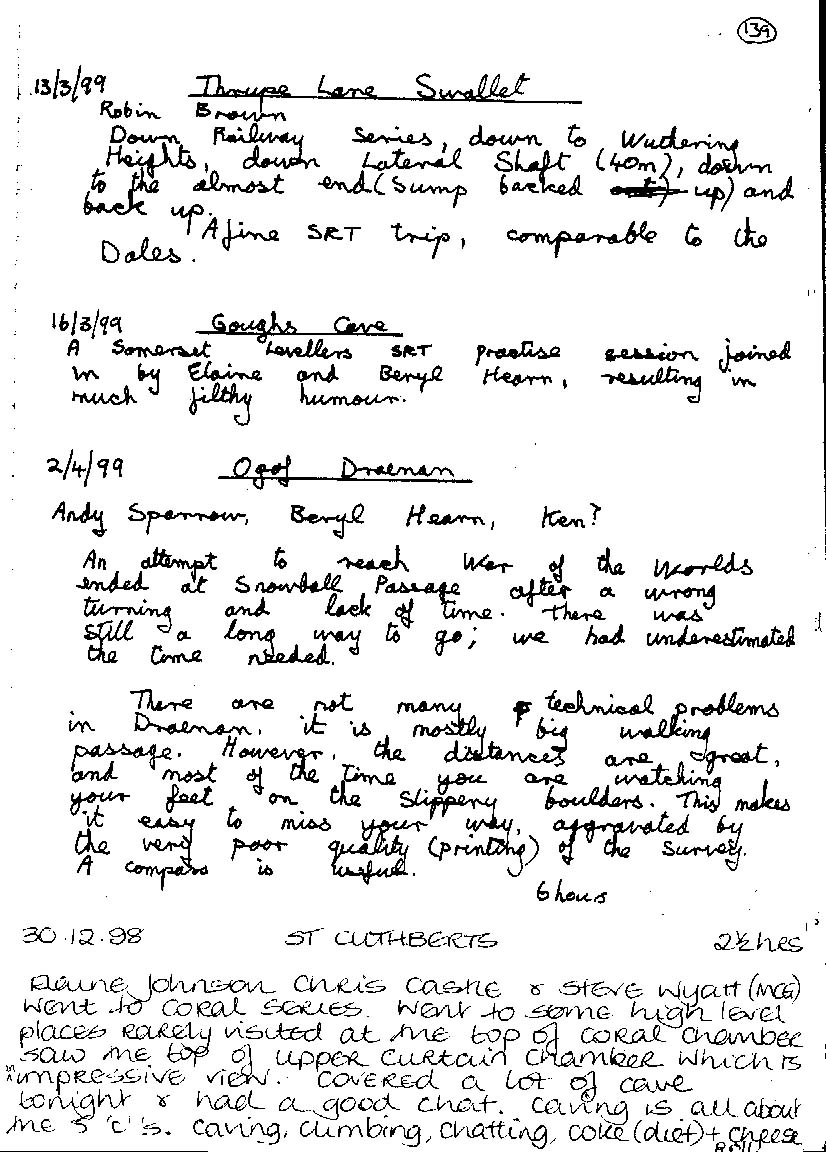 139
13/3/99 Thrupe Lane Swallet
Robin Brown
Down Railway Series, down to Wuthering
Heights, down Lateral Shaft (40m), down
to the almost end (Sump backed up) and
back up.
A fine SRT trip, comparable to the
Dales.
16/3/99 Goughs Cave
A Somerset Levellers SRT practise session joined
in by Elaine and Beryl Hearn, resulting in
much filthy humour.
2/4/99 Ogof Draenan
Andy Sparrow, Beryl Hearn, Ken?
An attempt to reach War of the Worlds
ended at Snowball Passage after a wrong
turning and lack of time. There was
still a long way to go; we had underestimated
the time needed.
There are not many technical problems
in Draenan, it is mostly big walking
passage. However, the distances are great,
and most of the time you are watching
your feet on the slippery boulders. This makes
it easy to miss your way, aggravated by
the very poor quality (printing) of the survey.
A compass is useful.
6 hours
30.12.98 ST CUTHBERTS 2½ hrs
Elaine Johnson Chris Castle & Steve Wyatt (MCG)
Went to Coral Series. Went to some high level
places rarely visited at the top of Coral Chamber
saw the top of Upper Curtain Chamber which is
impressive view. Covered a lot of cave
tonight & had a good chat. Caving is all about
the 5 'c's. Caving, climbing, chatting, coke (diet) + cheese
Roll